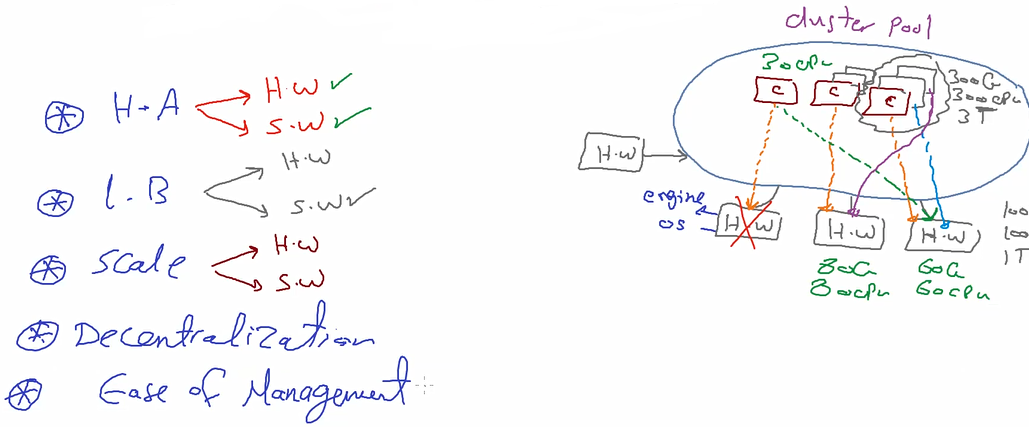 H.A
H.W
S.W
L.B
H.W
S.W
Scale
H.W
S.W
Decentralization
Ease of Management
cluster pool
30cpu
c
c
c
300G
300cpu
3T
H.W
engine
os
H.W
H.W
H.W
100
100
1T
80G
80cpu
60G
60cpu